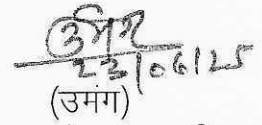 उमंग
23/06/25
(उमंग)